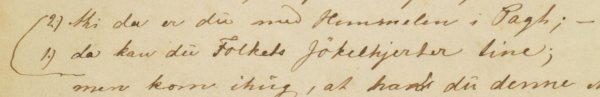 2) Thi da er du med Himmelen i Pagt; —
1) da kan du Folkets Jökelhjerter tine;
men kom ihug, at du denne